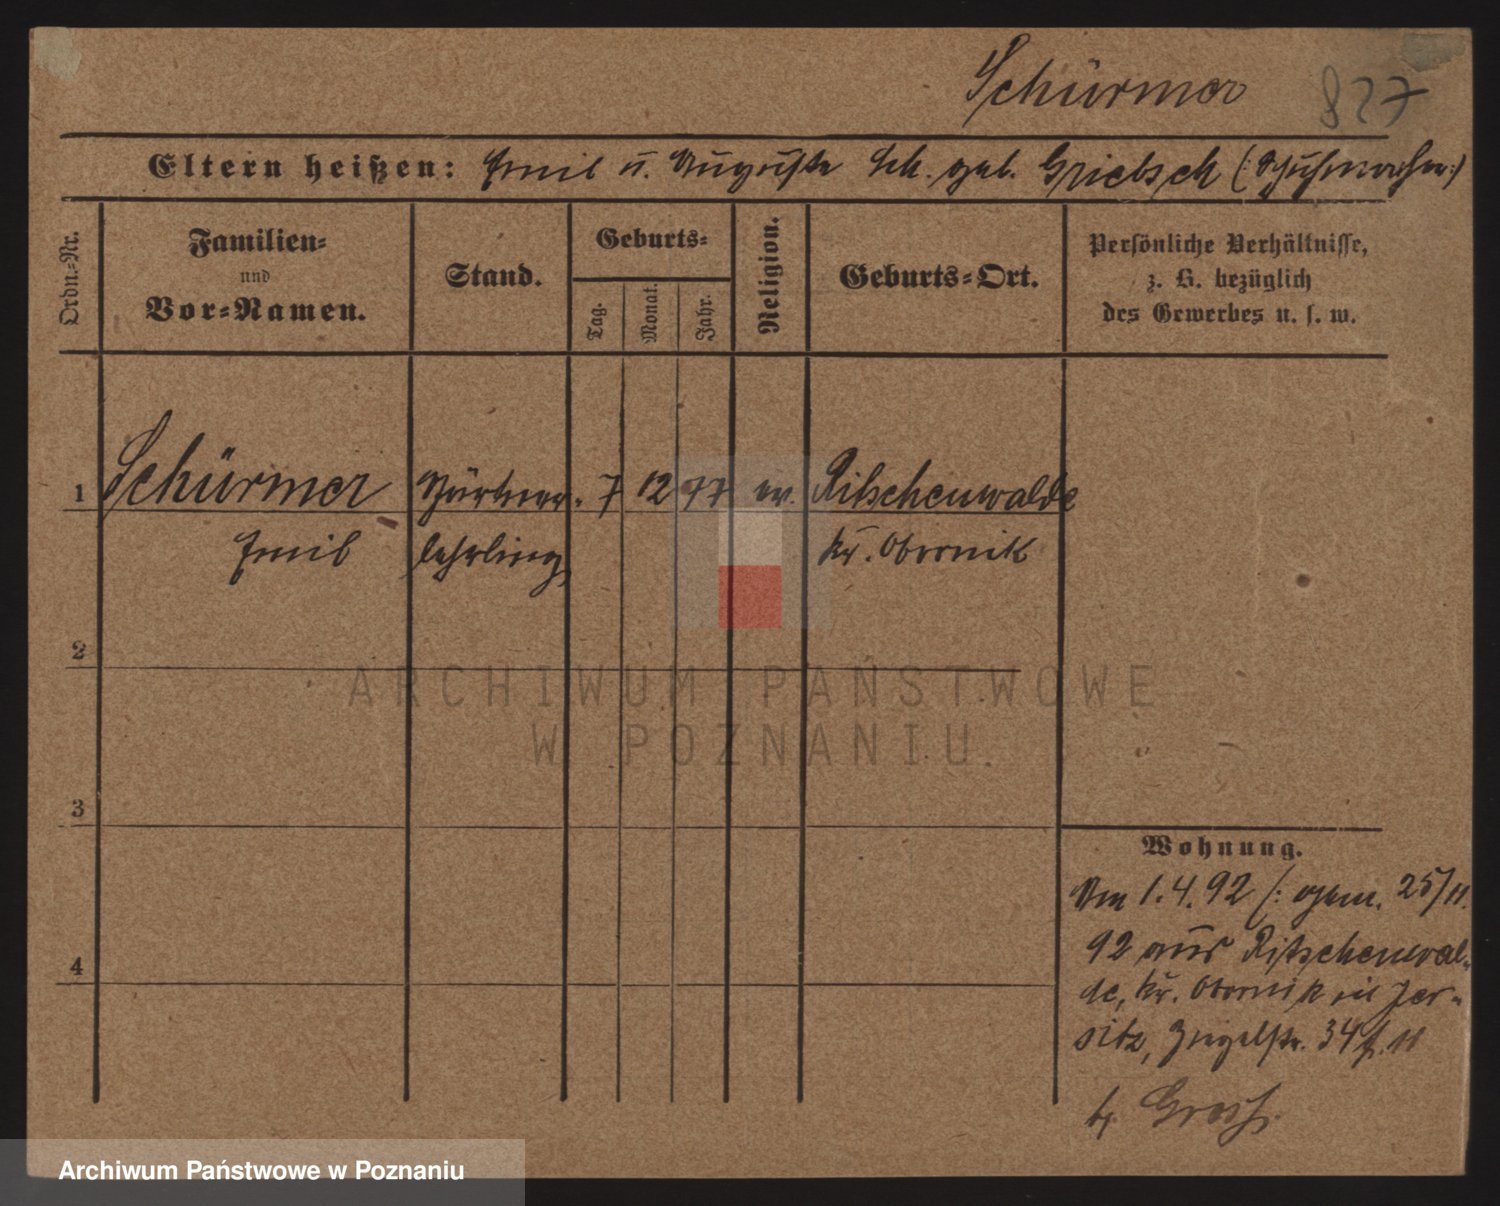 Schürmer 827
Eltern heißen: Emil u. Auguste Sch. geb. Grietsch (: Schuhmacher :)
Ordn.-Nr.
Familien-
und
Vor-Namen.
Stand.
Geburts-
Tag.
Monat.
Jahr.
Religion.
Geburts-Ort.
Persönliche Verhältnisse,
z. B. bezüglich
des Gewerbes u. s. w.
1 Schürmer Gärtner- 7 12 77 ev. Ritschenwalde
Emil lehrling Kr. Obornik
2
3
4
ARCHIWUM PAŃSTWOWE
W POZNANIU
Wohnung.
Am 1.4.92 (: gem. 25/11.
92 aus Ritschenwal-
de, Kr. Obornik in Jer-
sitz, Ziegelstr. 34
b. Gross.
Archiwum Państwowe w Poznaniu